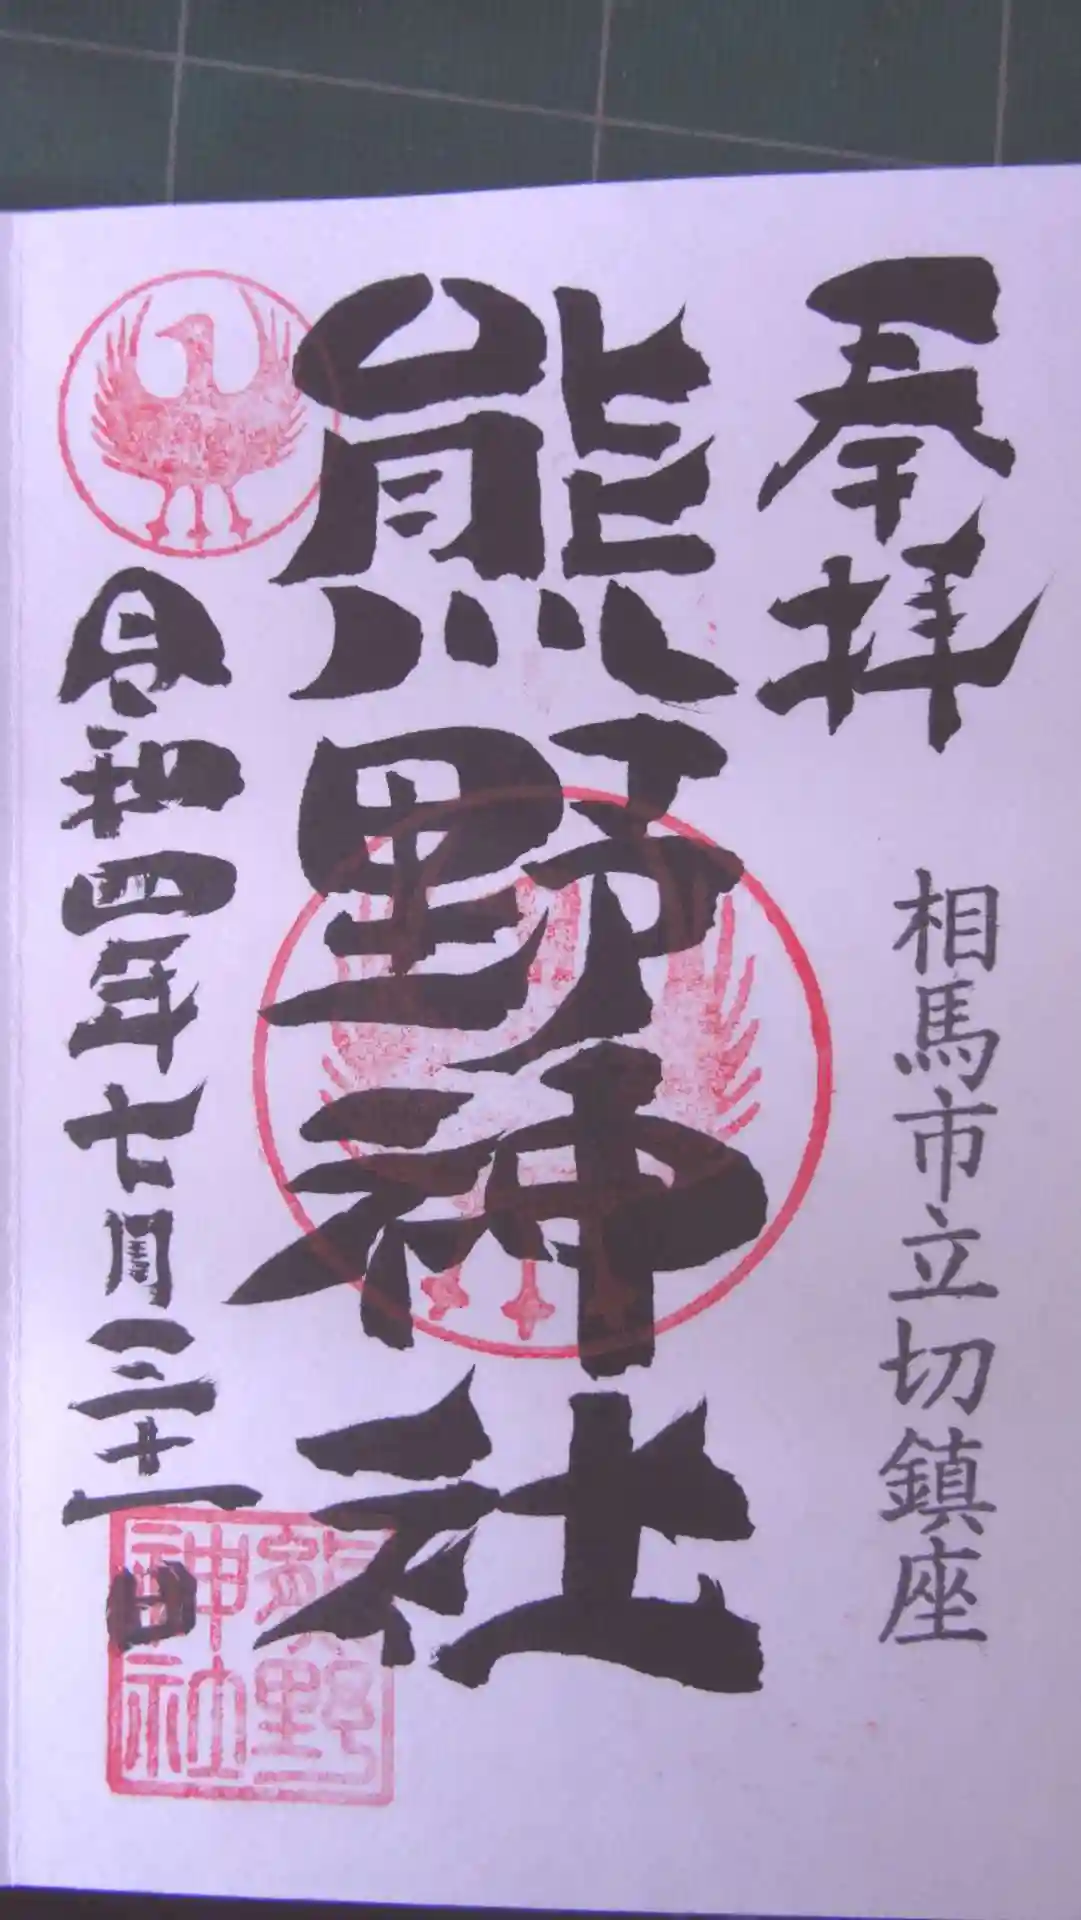 奉拝
相馬市立切鎮座
熊野神社
令和四年七月二十一日
熊野
神社